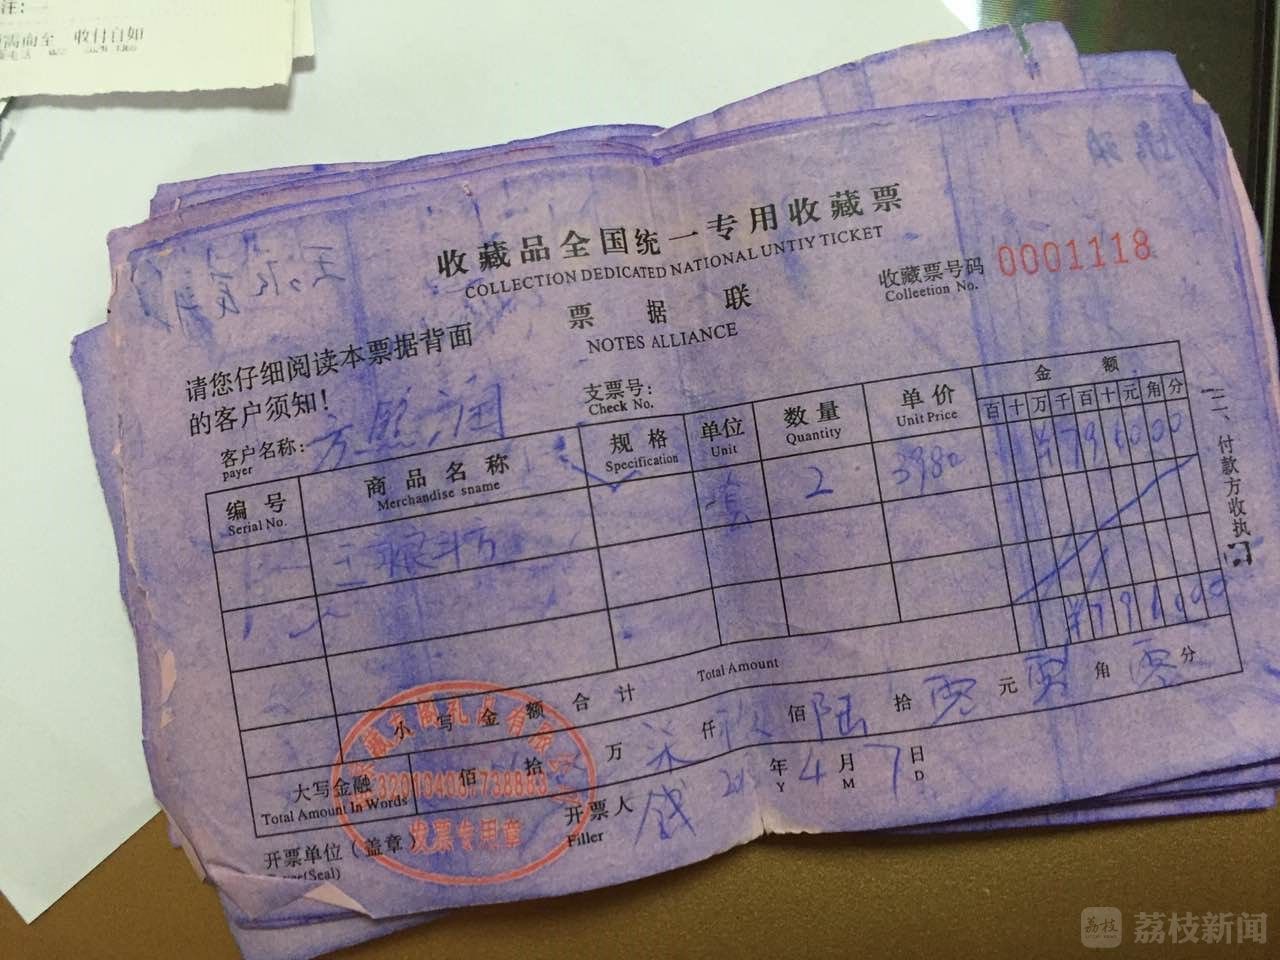 注:一
需而至 收付自如
收藏品全国统一专用收藏票
COLLECTION DEDICATED NATIONAL UNTIY TICKET
收藏票号码 0001118
Colleetion No.
票据联
NOTES ALLIANCE
请您仔细阅读本票据背面
的客户须知!
支票号:
Check No.
客户名称:
payer
编号 商品名称 规格 单位 数量 单价 金额
Serial No. Merchandise sname Specification Unit Quantity Unit Price 百十万千百十元角分
套 2 3980 ¥796000
小写金额合计 Total Amount ¥796000
大写金融 佰 拾 万 柒 仟 玖 佰 陆 拾 零 元 零 角 零 分
Total Amount In Words
开票单位(盖章) 开票人 钱 年 4 月 7 日
(Seal) Filler Y M D
发票专用章
二、付款方收执
荔枝新闻